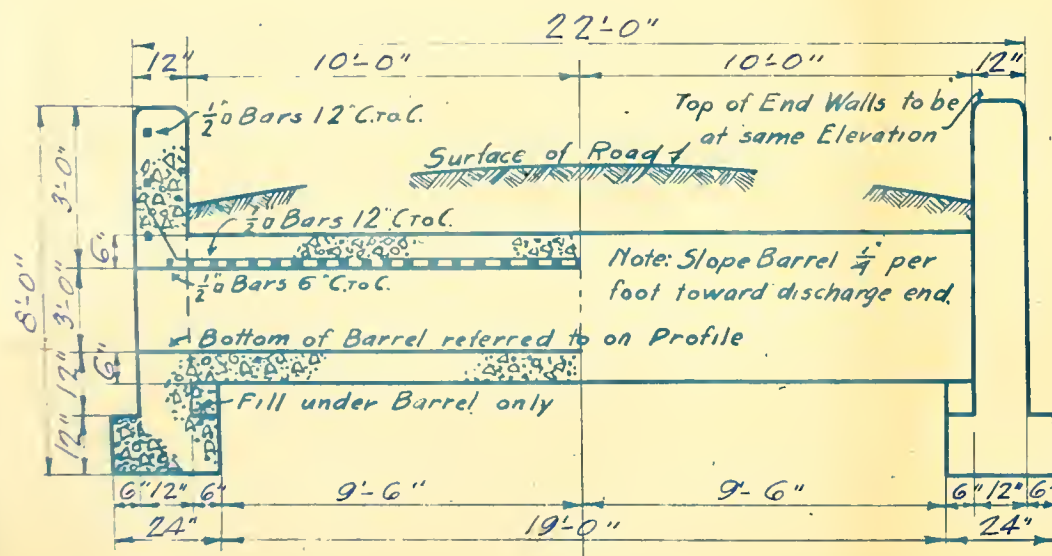 22'-0"
12" 10'-0" 10'-0" 12"
½"□ Bars 12" C.To C.
Top of End Walls to be
at same Elevation
Surface of Road
½"□ Bars 12" C.To C.
½"□ Bars 6" C.To C.
Note: Slope Barrel ¼" per
foot toward discharge end.
Bottom of Barrel referred to on Profile
Fill under Barrel only
8'-0"
3'-0"
3'-0"
12"
12"
6"
6"
6" 12" 6" 9'-6" 9'-6" 6" 12" 6"
24" 19'-0" 24"